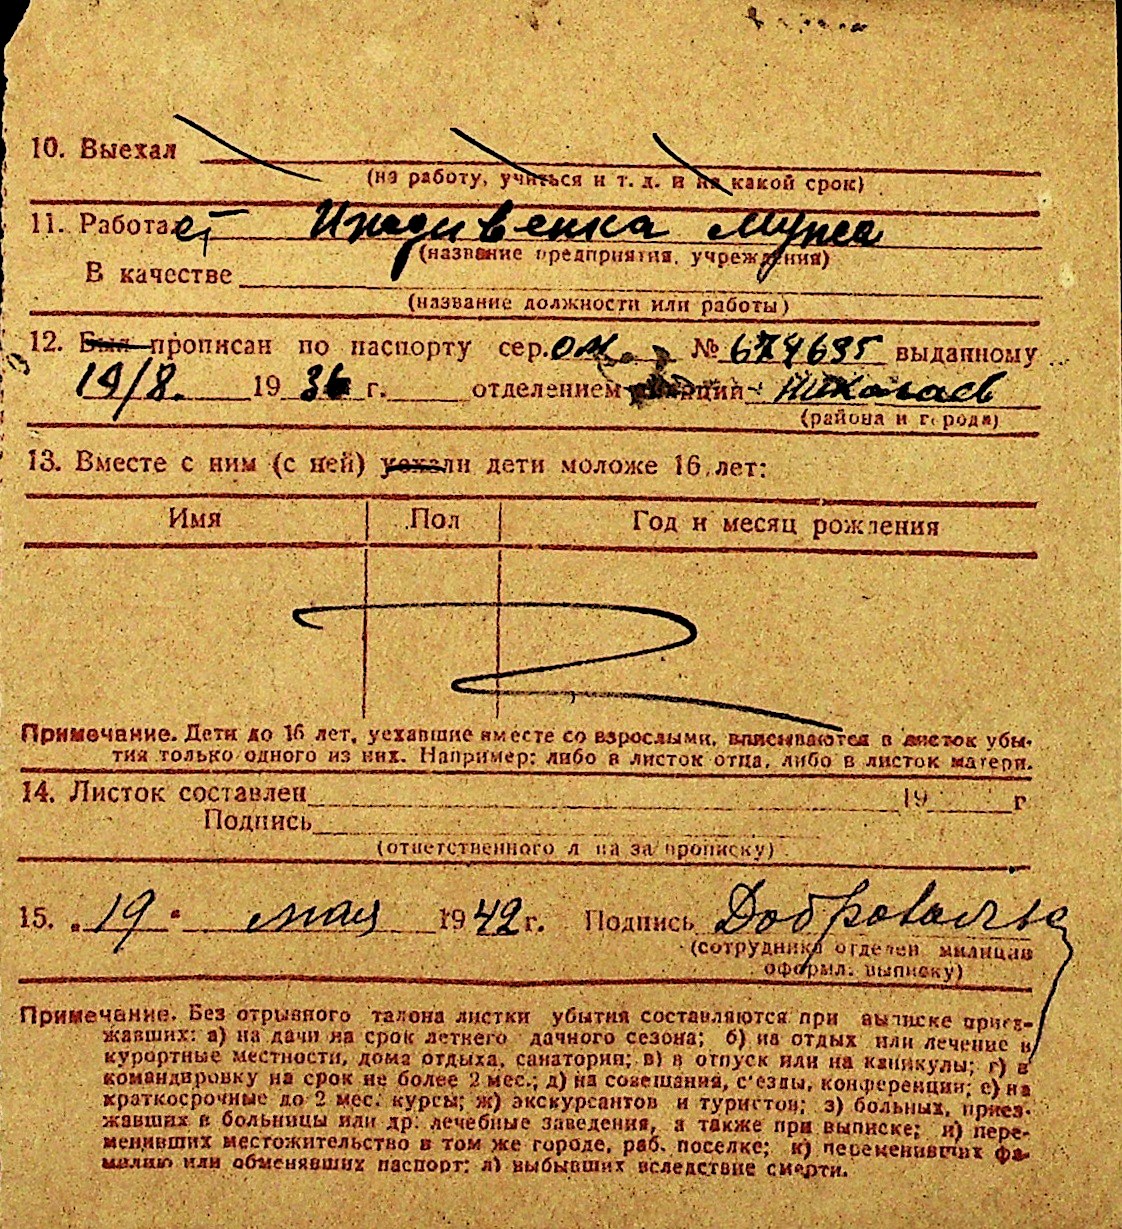 10. Выехал
(на работу, учиться и т. д. и на какой срок)
11. Работает Иждивенка мужа
(название предприятия, учреждения)
В качестве
(название должности или работы)
12. Был прописан по паспорту сер. ОМ № 674695 выданному
19/8. 1936 г. отделением милиции Николаев
(района и города)
13. Вместе с ним (с ней) уехали дети моложе 16 лет:
Имя Пол Год и месяц рождения
Примечание. Дети до 16 лет, уехавшие вместе со взрослыми, вписываются в листок убы-
тия только одного из них. Например: либо в листок отца, либо в листок матери.
14. Листок составлен 19 г
Подпись
(ответственного лица за прописку)
15. „19" мая 1942 г. Подпись
(сотрудника отделен. милиции
оформл. выписку)
Примечание. Без отрывного талона листки убытия составляются при выписке приез-
жавших: а) на дачи на срок летнего дачного сезона; б) на отдых или лечение в
курортные местности, дома отдыха, санатории; в) в отпуск или на каникулы; г) в
командировку на срок не более 2 мес.; д) на совещания, с'езды, конференции; е) на
краткосрочные до 2 мес. курсы; ж) экскурсантов и туристов; з) больных, приез-
жавших в больницы или др. лечебные заведения, а также при выписке; и) пере-
менивших местожительство в том же городе, раб. поселке; к) переменивших фа-
милию или обменявших паспорт; л) выбывших вследствие смерти.